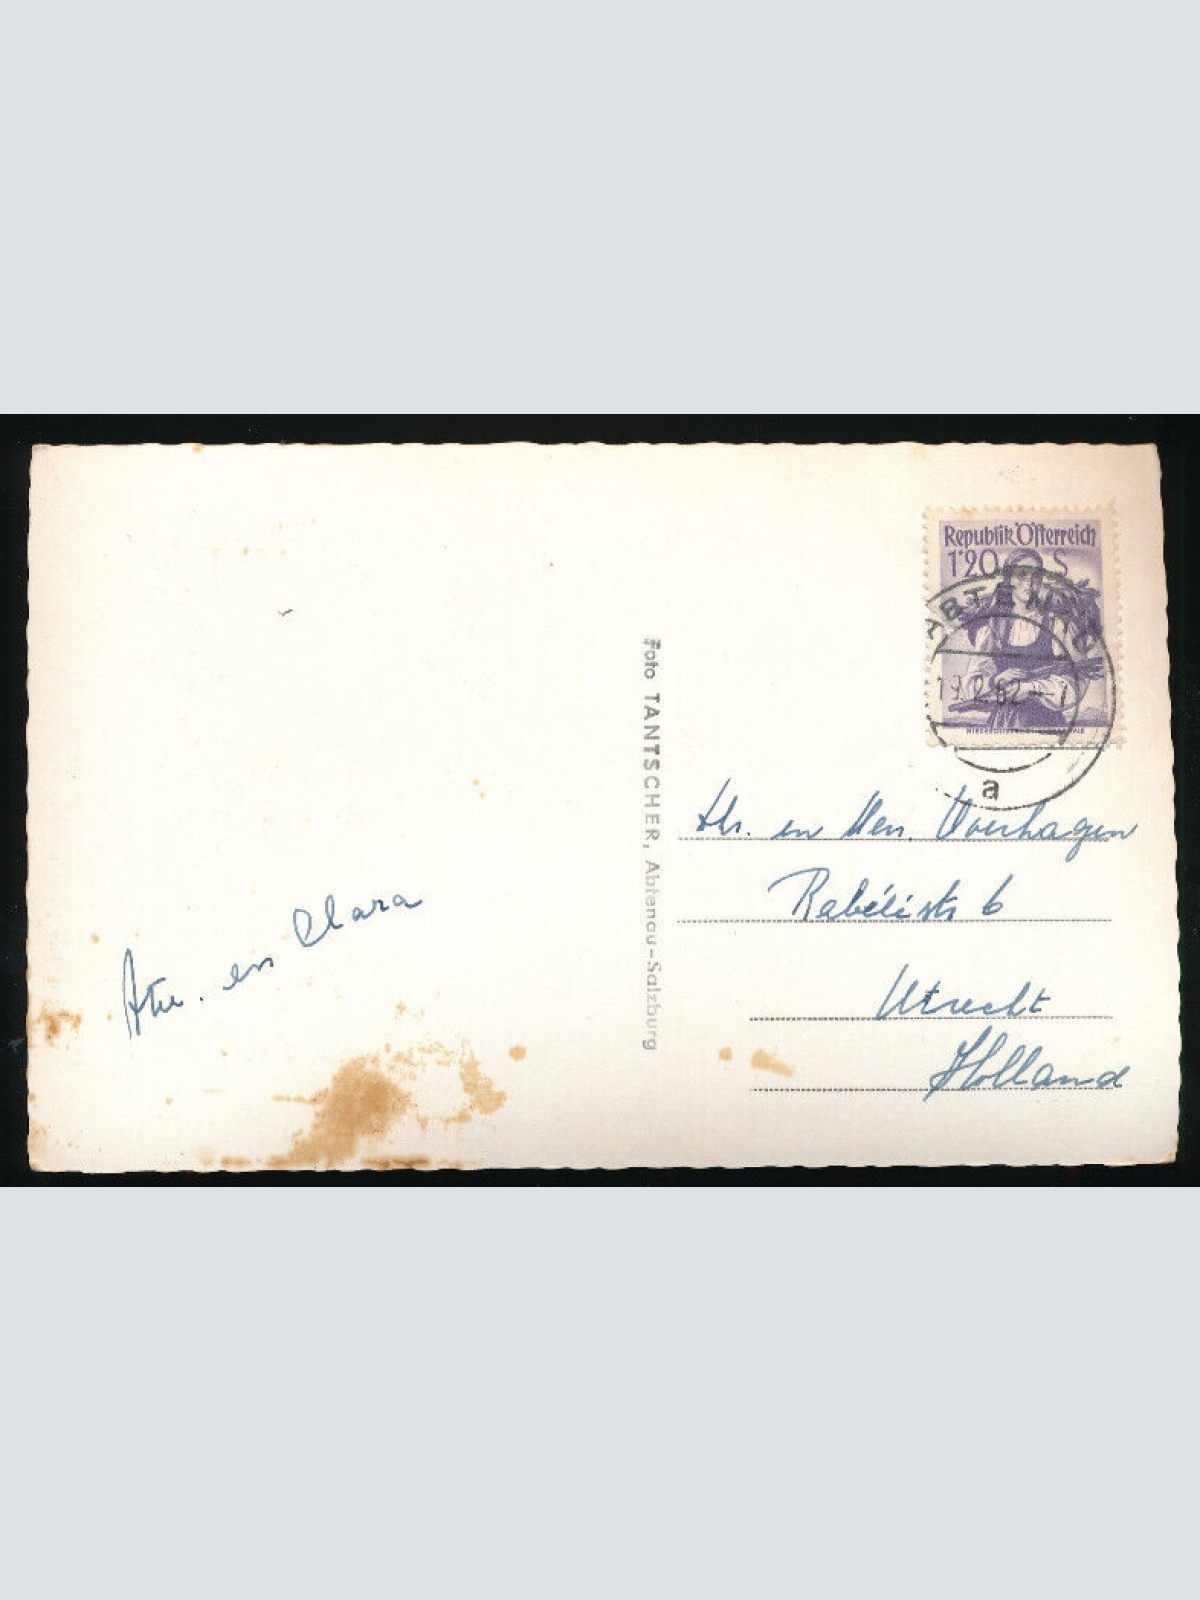 Republik Österreich
1'20 S
ABTENAU
19.2.62 - 7
a
Foto TANTSCHER, Abtenau-Salzburg
en Clara
en Mevr. Overhagen
6
Utrecht
Holland